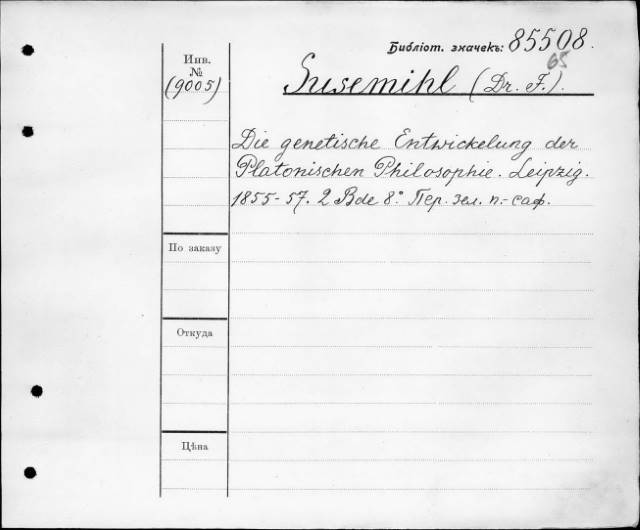 Библіот. значекъ: 85508.
65
Инв.
№
(9005)
Susemihl (Dr. F.).
Die genetische Entwickelung der
Platonischen Philosophie. Leipzig.
1855-57. 2 Bde 8.° Пер. зел. п.-саф.
По заказу
Откуда
Цѣна